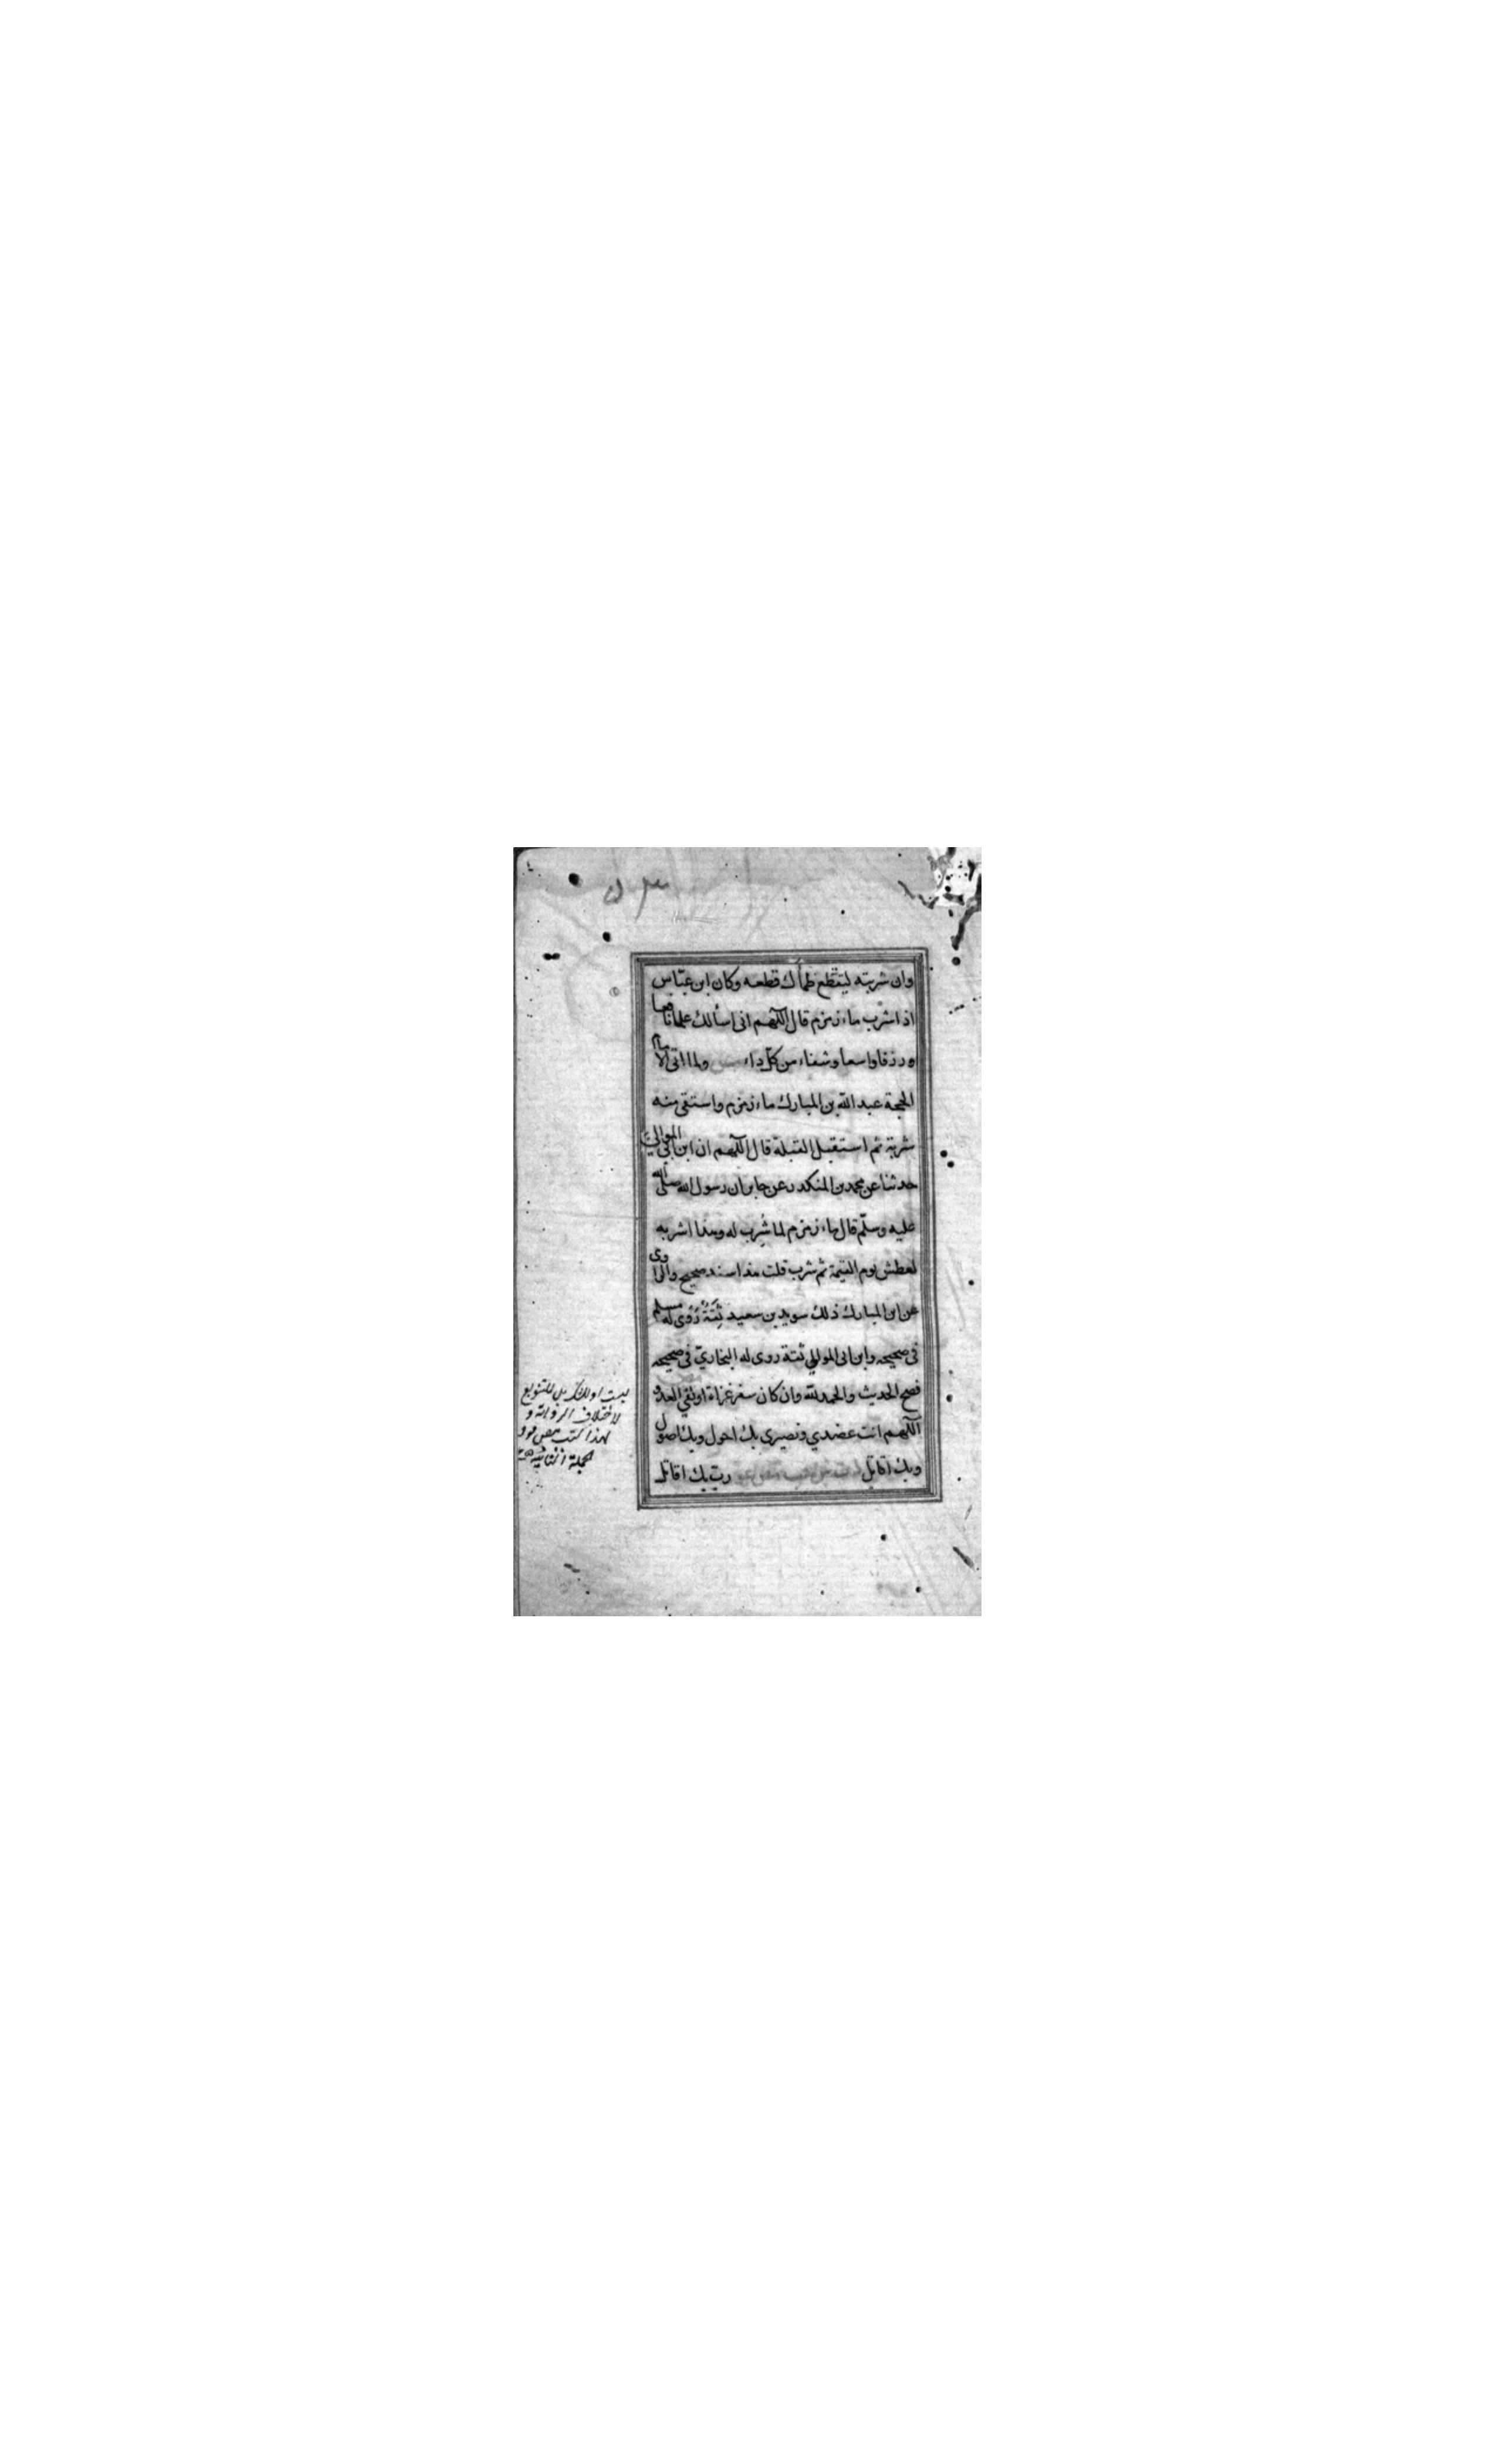 وان شربته ليقطع ظمأك قطعه وكان ابن عبّاس
اذا شرب ماء زمزم قال اللّهم انى اسألك علما نافعا
ورزقا واسعا وشفاء من كلّ داء ولما اتى الامام
الحجة عبد الله بن المبارك ماء زمزم واستقى منه
شربة ثم استقبل القبلة قال اللّهم ان ابن ابي الموالي
حدثنا عن محمد بن المنكدر عن جابر ان رسول الله صلى الله
عليه وسلّم قال ماء زمزم لما شرب له وهذا اشربه
لعطش يوم القيمة ثم شرب قلت هذا سند صحيح والراوى
عن ابن المبارك ذلك سويد بن سعيد ثِقَةٌ رَوَى له مسلم
فى صحيحه وابن ابى الموالي ثقة روى له البخاريّ فى صحيحه
فصح الحديث والحمد لله وان كان سفر غزاة او لقي العدو
اللّهم انت عضدي ونصيرى بك احول وبك اصول
وبك اقاتل ربّ بك اقاتل
للتنويع
لاختلاف الرواية و
لهذا كتب
الجملة الثانية